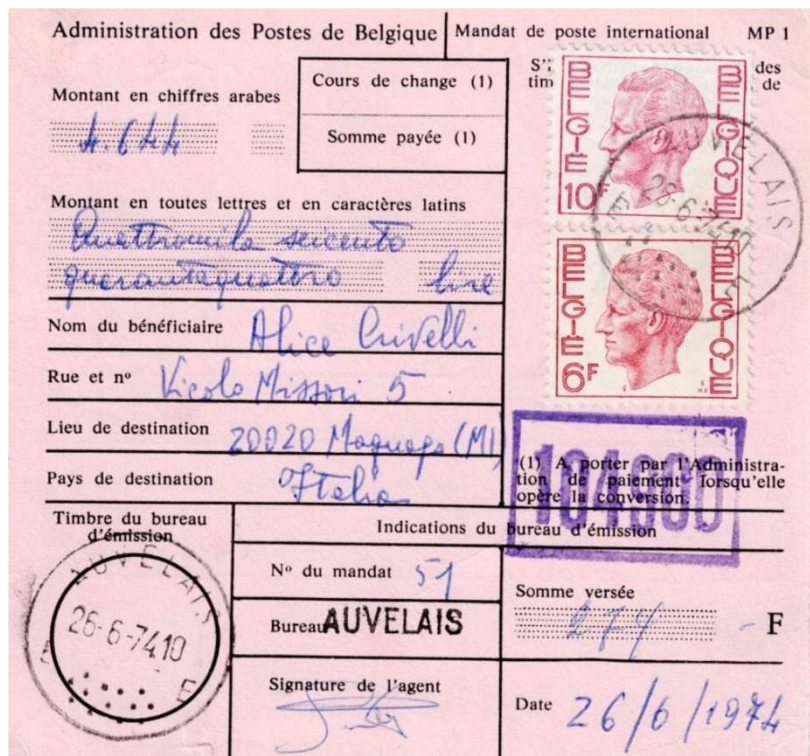 Administration des Postes de Belgique
Mandat de poste international MP 1
Montant en chiffres arabes
4.644
Cours de change (1)
Somme payée (1)
des
tim
de
BELGIE 10F BELGIQUE
AUVELAIS
26-6-74.10
E E
BELGIE 6F BELGIQUE
Montant en toutes lettres et en caractères latins
Quattromila seicento
quarantaquattro lire
Nom du bénéficiaire Alice Crivelli
Rue et nº Vicolo Missori 5
Lieu de destination 20020 Magnago (MI)
Pays de destination Italia
(1) A porter par l'Administra-
tion de paiement lorsqu'elle
opère la conversion.
Timbre du bureau
d'émission
AUVELAIS
26-6-74.10
E
Indications du bureau d'émission
Nº du mandat 51
Bureau AUVELAIS
Signature de l'agent
Somme versée
274 - F
Date 26/6/1974